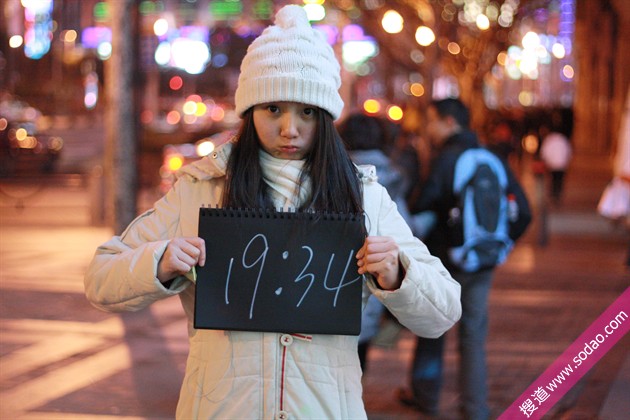 19:34
搜道 www.sodao.com